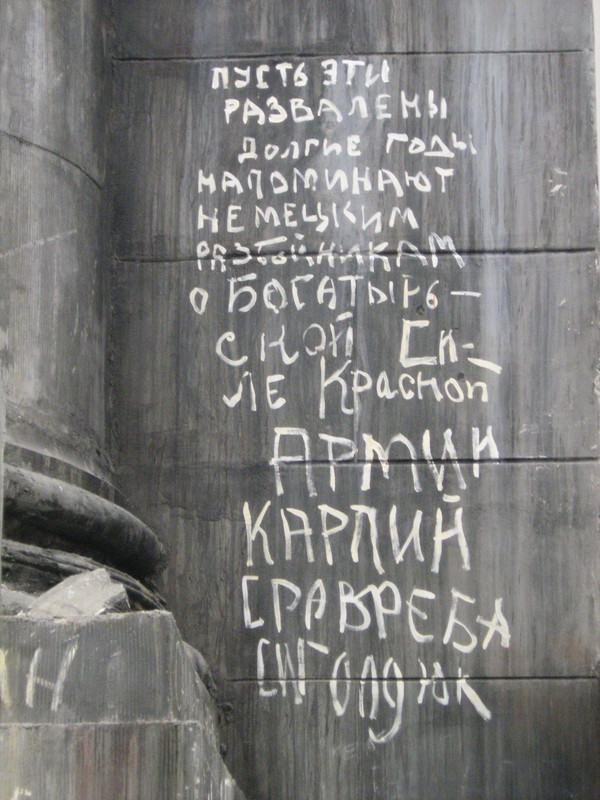 ПУСТЬ ЭТИ
РАЗВАЛЕНЫ
ДОЛГИЕ ГОДЫ
НАПОМИНАЮТ
НЕМЕЦКИМ
РАЗБОЙНИКАМ
О БОГАТЫРЬ-
СКОЙ СИ-
ЛЕ КРАСНОЙ
АРМИИ
КАРПИЙ
СРАВРЕБА
Н